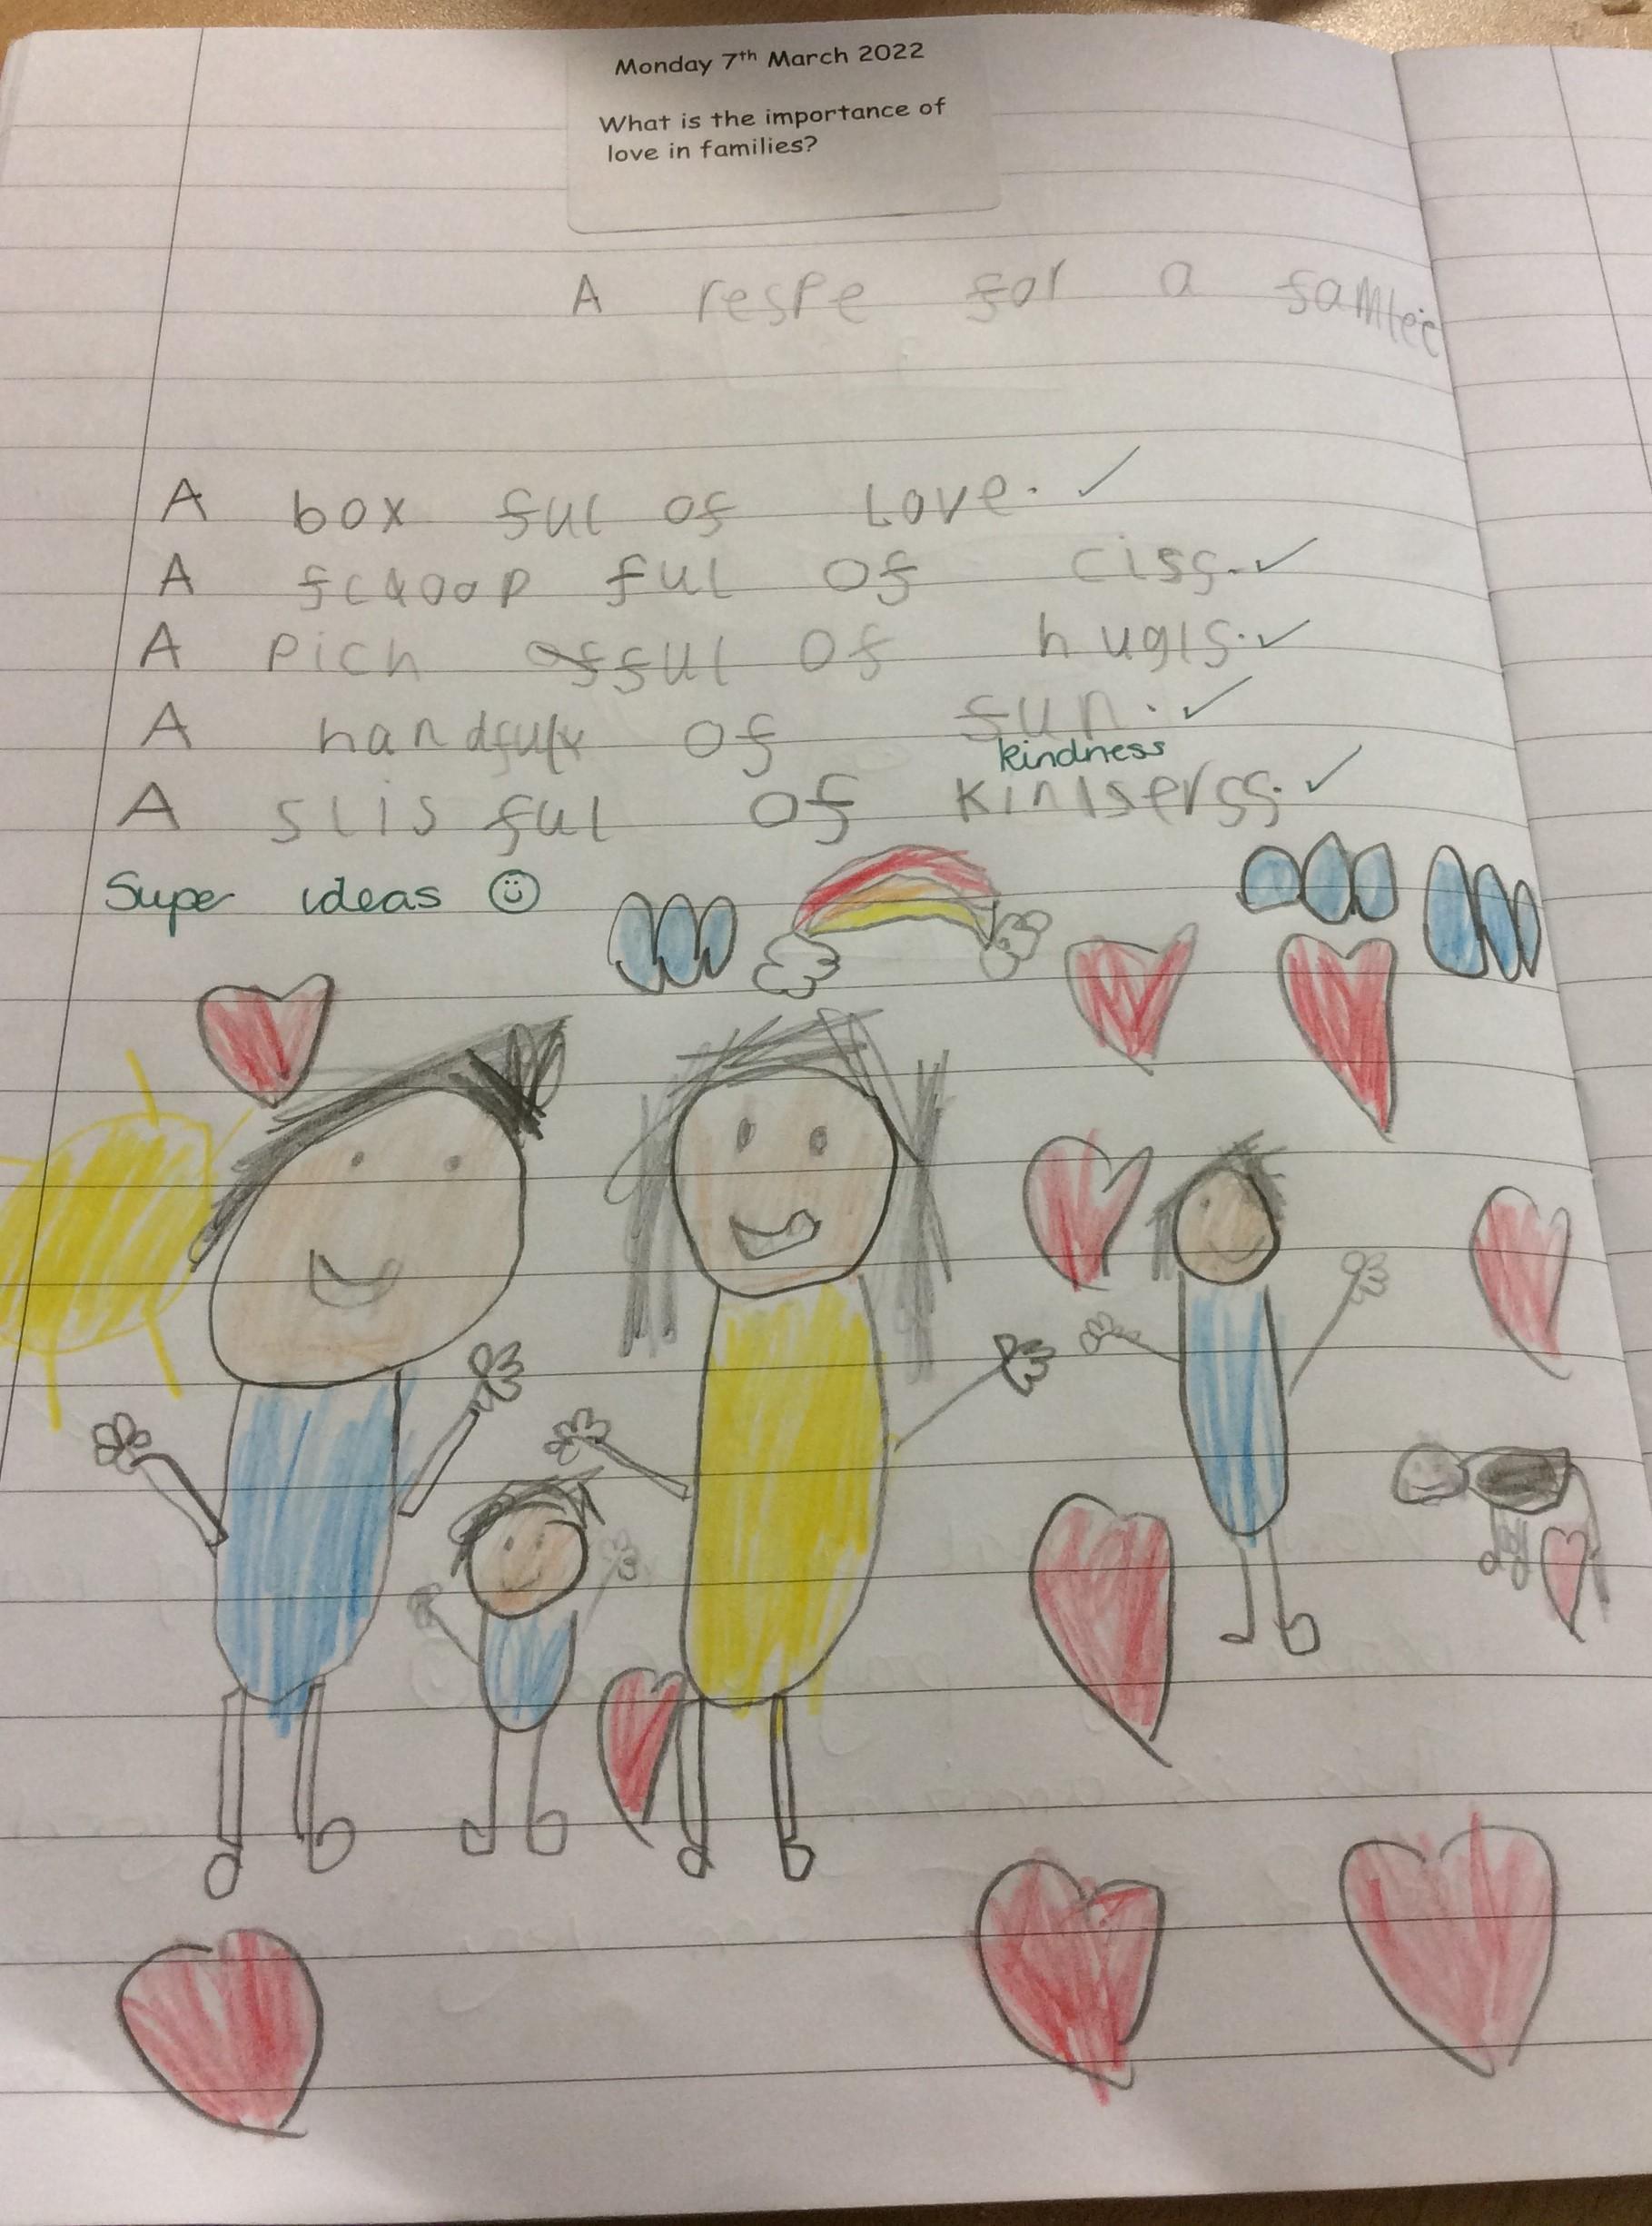 Monday 7th March 2022
What is the importance of
love in families?
A respe for a famleé
A box ful of Love. ✓
A scoop ful of ciss. ✓
A pich ful of hugis. ✓
A handful of fun. ✓
kindness
A slis ful of kinlserss. ✓
Super ideas ☺